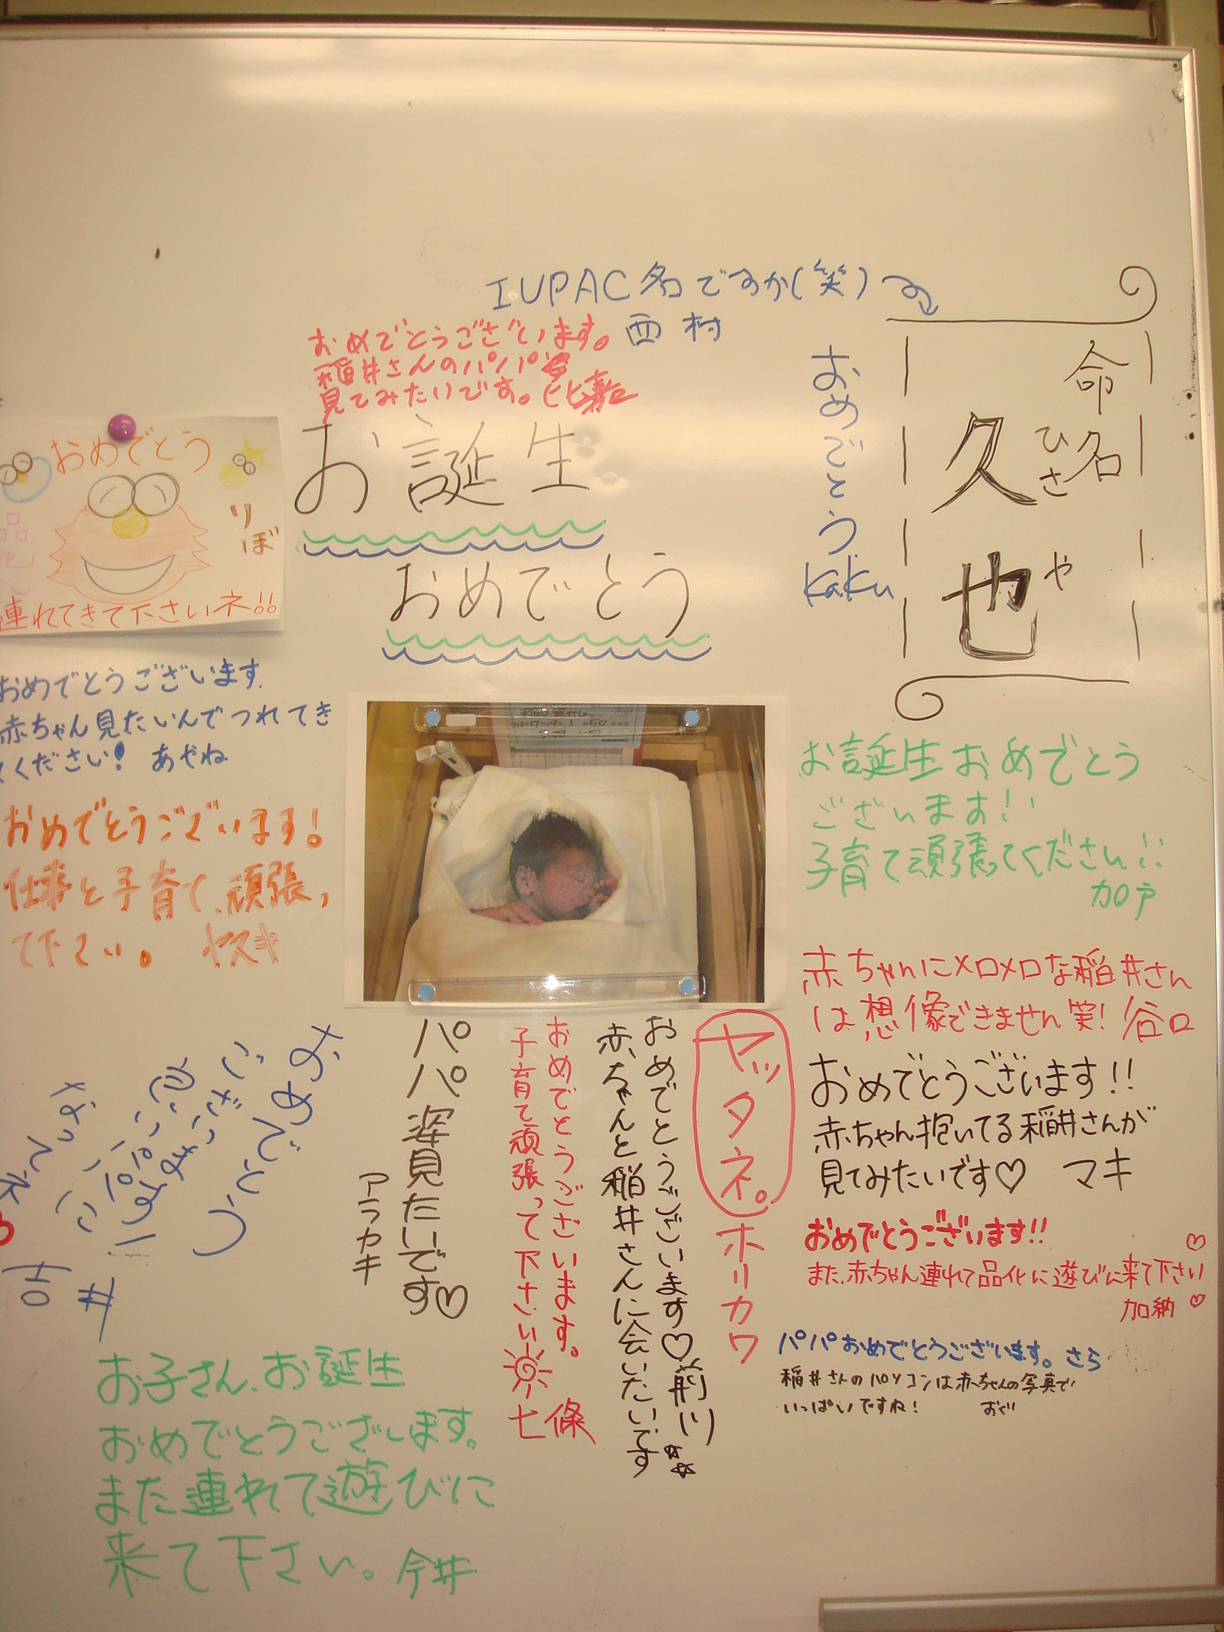 IUPAC名ですか(笑)
西村
おめでとうございます。
稲井さんのパパ姿
見てみたいです。比嘉
お誕生
おめでとう
命名
久也
ひさ
や
おめでとう
kaku
おめでとう
りぼ
品化に
連れてきて下さいネ!!
おめでとうございます
赤ちゃん見たいんでつれてき
てください! あやね
おめでとうございます!
仕事と子育て、頑張っ
て下さい。 ヤスキ
おめでとう
ございます!
いいパパに
なってネ
吉井
お子さん、お誕生
おめでとうございます。
また連れて遊びに
来て下さい。今井
パパ姿見たいです♡
アラカキ
おめでとうございます。
子育て頑張って下さい
七條
おめでとうございます♡前川
赤ちゃんと稲井さんに会いたいです
ヤッタネ。ホリカワ
お誕生おめでとう
ございます!!
子育て頑張ってください!!
加戸
赤ちゃんにメロメロな稲井さん
は想像できません笑! 谷口
おめでとうございます!!
赤ちゃん抱いてる稲井さんが
見てみたいです♡ マキ
おめでとうございます!!
また、赤ちゃん連れて品化に遊びに来て下さい
加納
パパおめでとうございます。さら
稲井さんのパソコンは赤ちゃんの写真で
いっぱいですね! おぐ